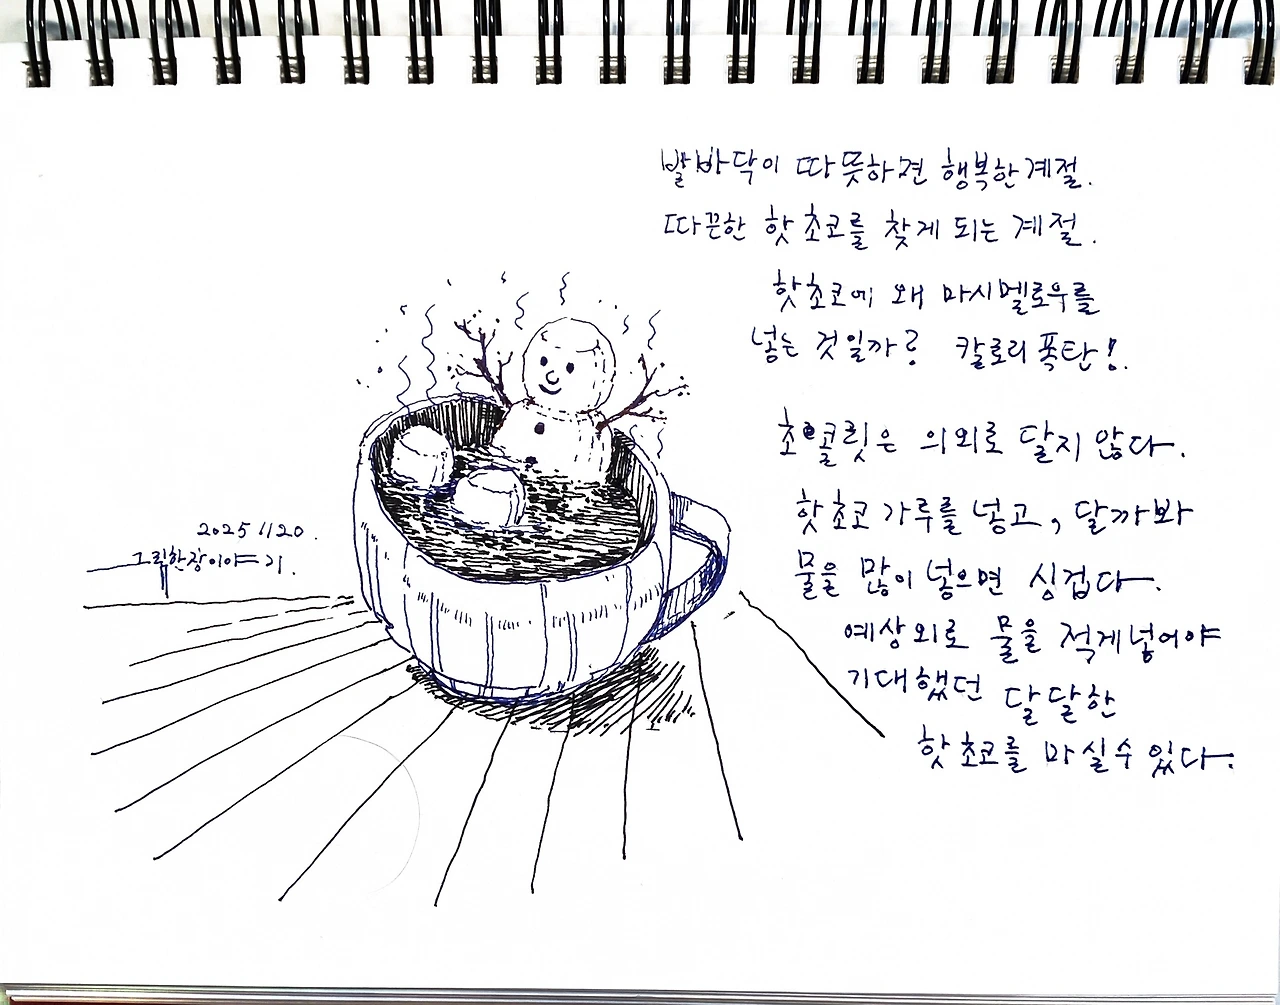 발바닥이 따뜻하면 행복한계절.
따끈한 핫초코를 찾게 되는 계절.
핫초코에 왜 마시멜로우를
넣는 것일까? 칼로리폭탄!
초콜릿은 의외로 달지 않다.
핫초코 가루를 넣고, 달까봐
물을 많이 넣으면 싱겁다.
예상외로 물을 적게넣어야
기대했던 달달한
핫초코를 마실수 있다.
2025 11 20.
그림한장이야기.